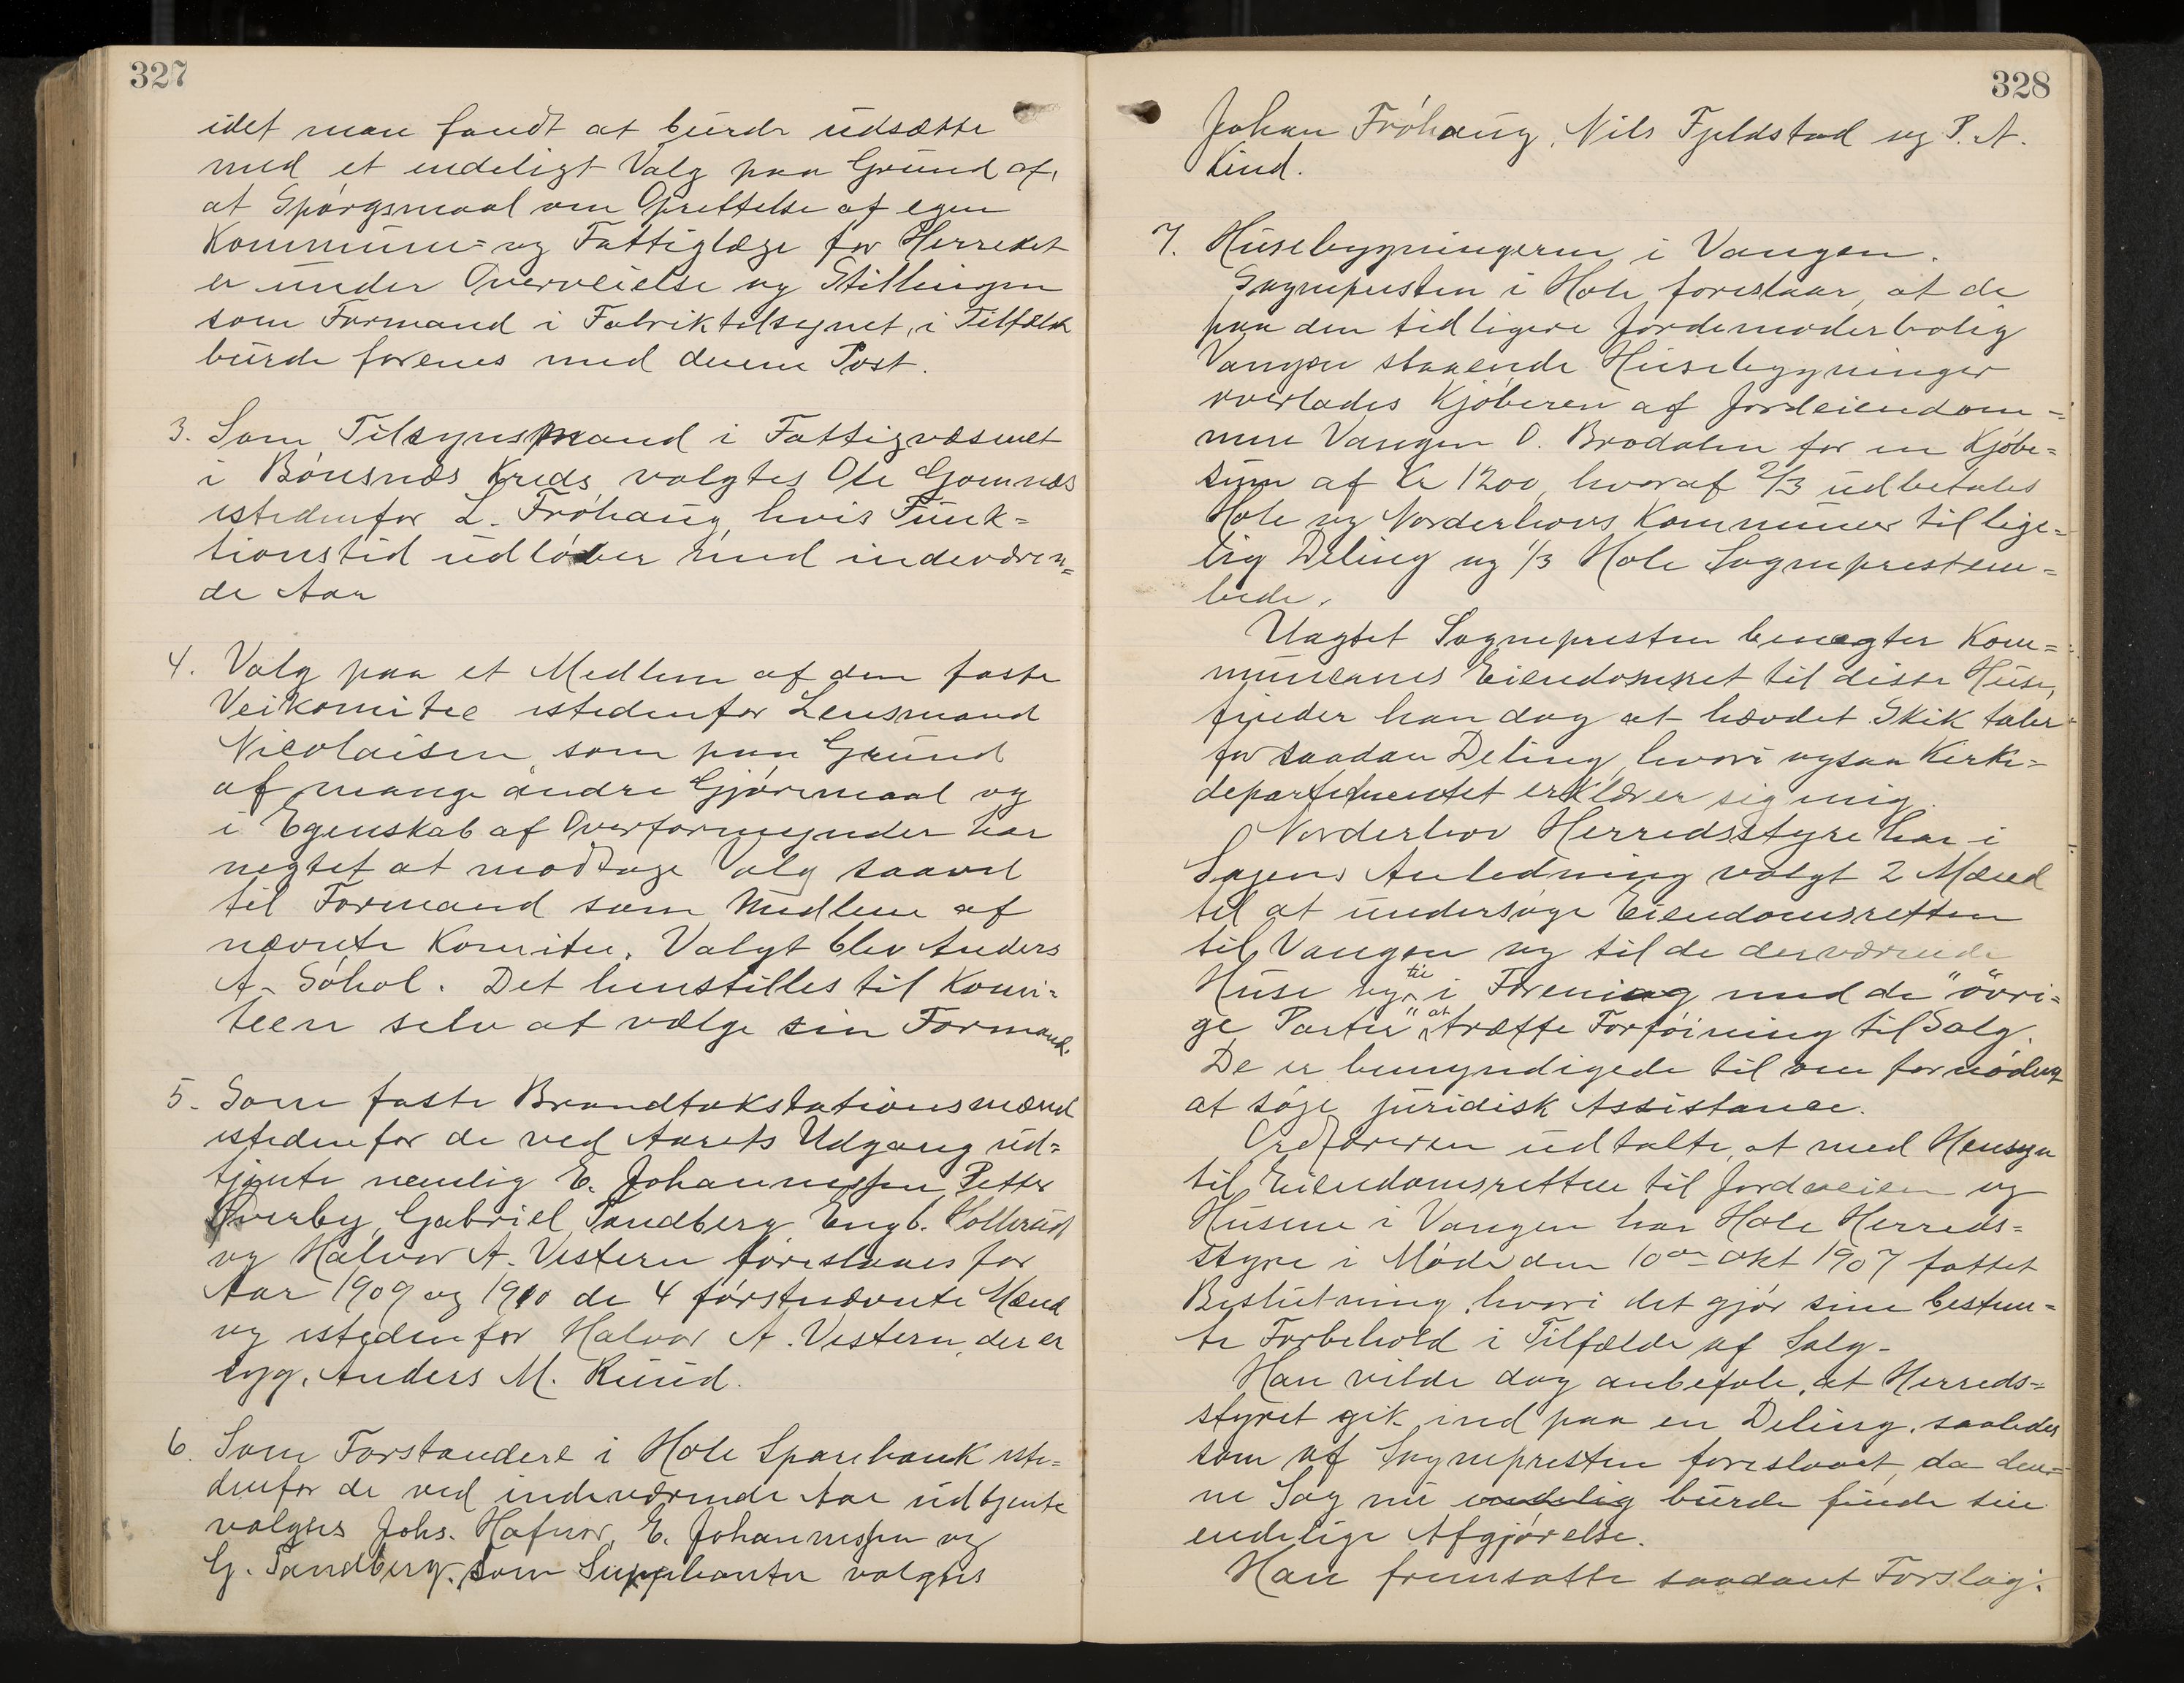 327
idet man fandt at burde udsætte
med et endeligt Valg paa Grund af,
at Spørgsmaal om Oprettelse af egen
Kommune= og Fattiglæge for Herredet
er under Overveielse og Stillingen
som Formand i Fabriktilsynet, i Tilfælde
burde forenes med denne Post.
3. Som Tilsynsmand i Fattigvæsenet
i Bønsnæs Kreds valgtes Ole Gomnæs
istedenfor L. Frøhaug, hvis Funk=
tionstid udløber med indeværen=
de Aar
4. Valg paa et Medlem af den faste
Veikomitee istedenfor Lensmand
Nicolaisen, som paa Grund
af mange andre Gjøremaal og
i Egenskab af Overformynder har
negtet at modtage Valg saavel
til Formand som Medlem af
nævnte Komite. Valgt blev Anders
A. Søhol. Det henstilles til Komi=
teen selv at vælge sin Formand.
5. Som faste Brandtakstationsmænd
istedenfor de ved Aarets Udgang ud=
tjente nemlig E. Johannessen, Petter
Øverby, Gabriel Sandberg Engb. Hollerud
og Halvor A. Vestern foreslaaes for
Aar 1909 og 1910 de 4 førstnævnte Mænd
og istedenfor Halvor A. Vestern, der er
syg, Anders M. Ruud.
6. Som Forstandere i Hole Sparebank iste=
denfor de ved indeværende Aar udtjente
valgtes Johs. Hafnor, E. Johannessen og
G. Sandberg. Som Suppleanter valgtes
328
Johan Frøhaug, Nils Fjeldstad og P. A.
Kind.
7. Husebygningerne i Vangen.
Sognepresten i Hole foreslaar, at de
paa den tidligere Jordemoderbolig
Vangen staaende Husebygninger
overlades Kjøberen af Jordeiendom=
men Vangen O. Brodalen for en Kjøbe=
sum af Kr 1200, hvoraf 2/3 udbetales
Hole og Norderhovs Kommuner til lige=
lig Deling og 1/3 Hole Sogneprestem=
bede.
Uagtet Sognepresten benegter Kom=
munernes Eiendomsret til disse Huse,
finder han dog at hævdet Skik taler
for saadan Deling, hvori ogsaa Kirke=
departementet erklærer sig enig.
Norderhov Herredsstyre har i
Sagens Anledning valgt 2 Mænd
til at undersøge Eiendomsretten
til Vangen og til de derværende
Huse og til i Forening med de "øvri=
ge Parter" at træffe Forføining til Salg.
De er bemyndigede til om fornødent
at søge juridisk Assistance.
Ordføreren udtalte, at med Hensyn
til Eiendomsretten til Jordveien og
Husene i Vangen har Hole Herreds=
styre i Møde den 10de Okt 1907 fattet
Beslutning, hvori det gjør sine bestem=
te Forbehold i Tilfælde af Salg.
Han vilde dog anbefale, at Herreds=
styret gik ind paa en Deling, saaledes
som af Sognepresten foreslaaet, da den=
ne Sag nu endelig burde finde sin
endelige Afgjørelse.
Han fremsatte saadant Forslag: